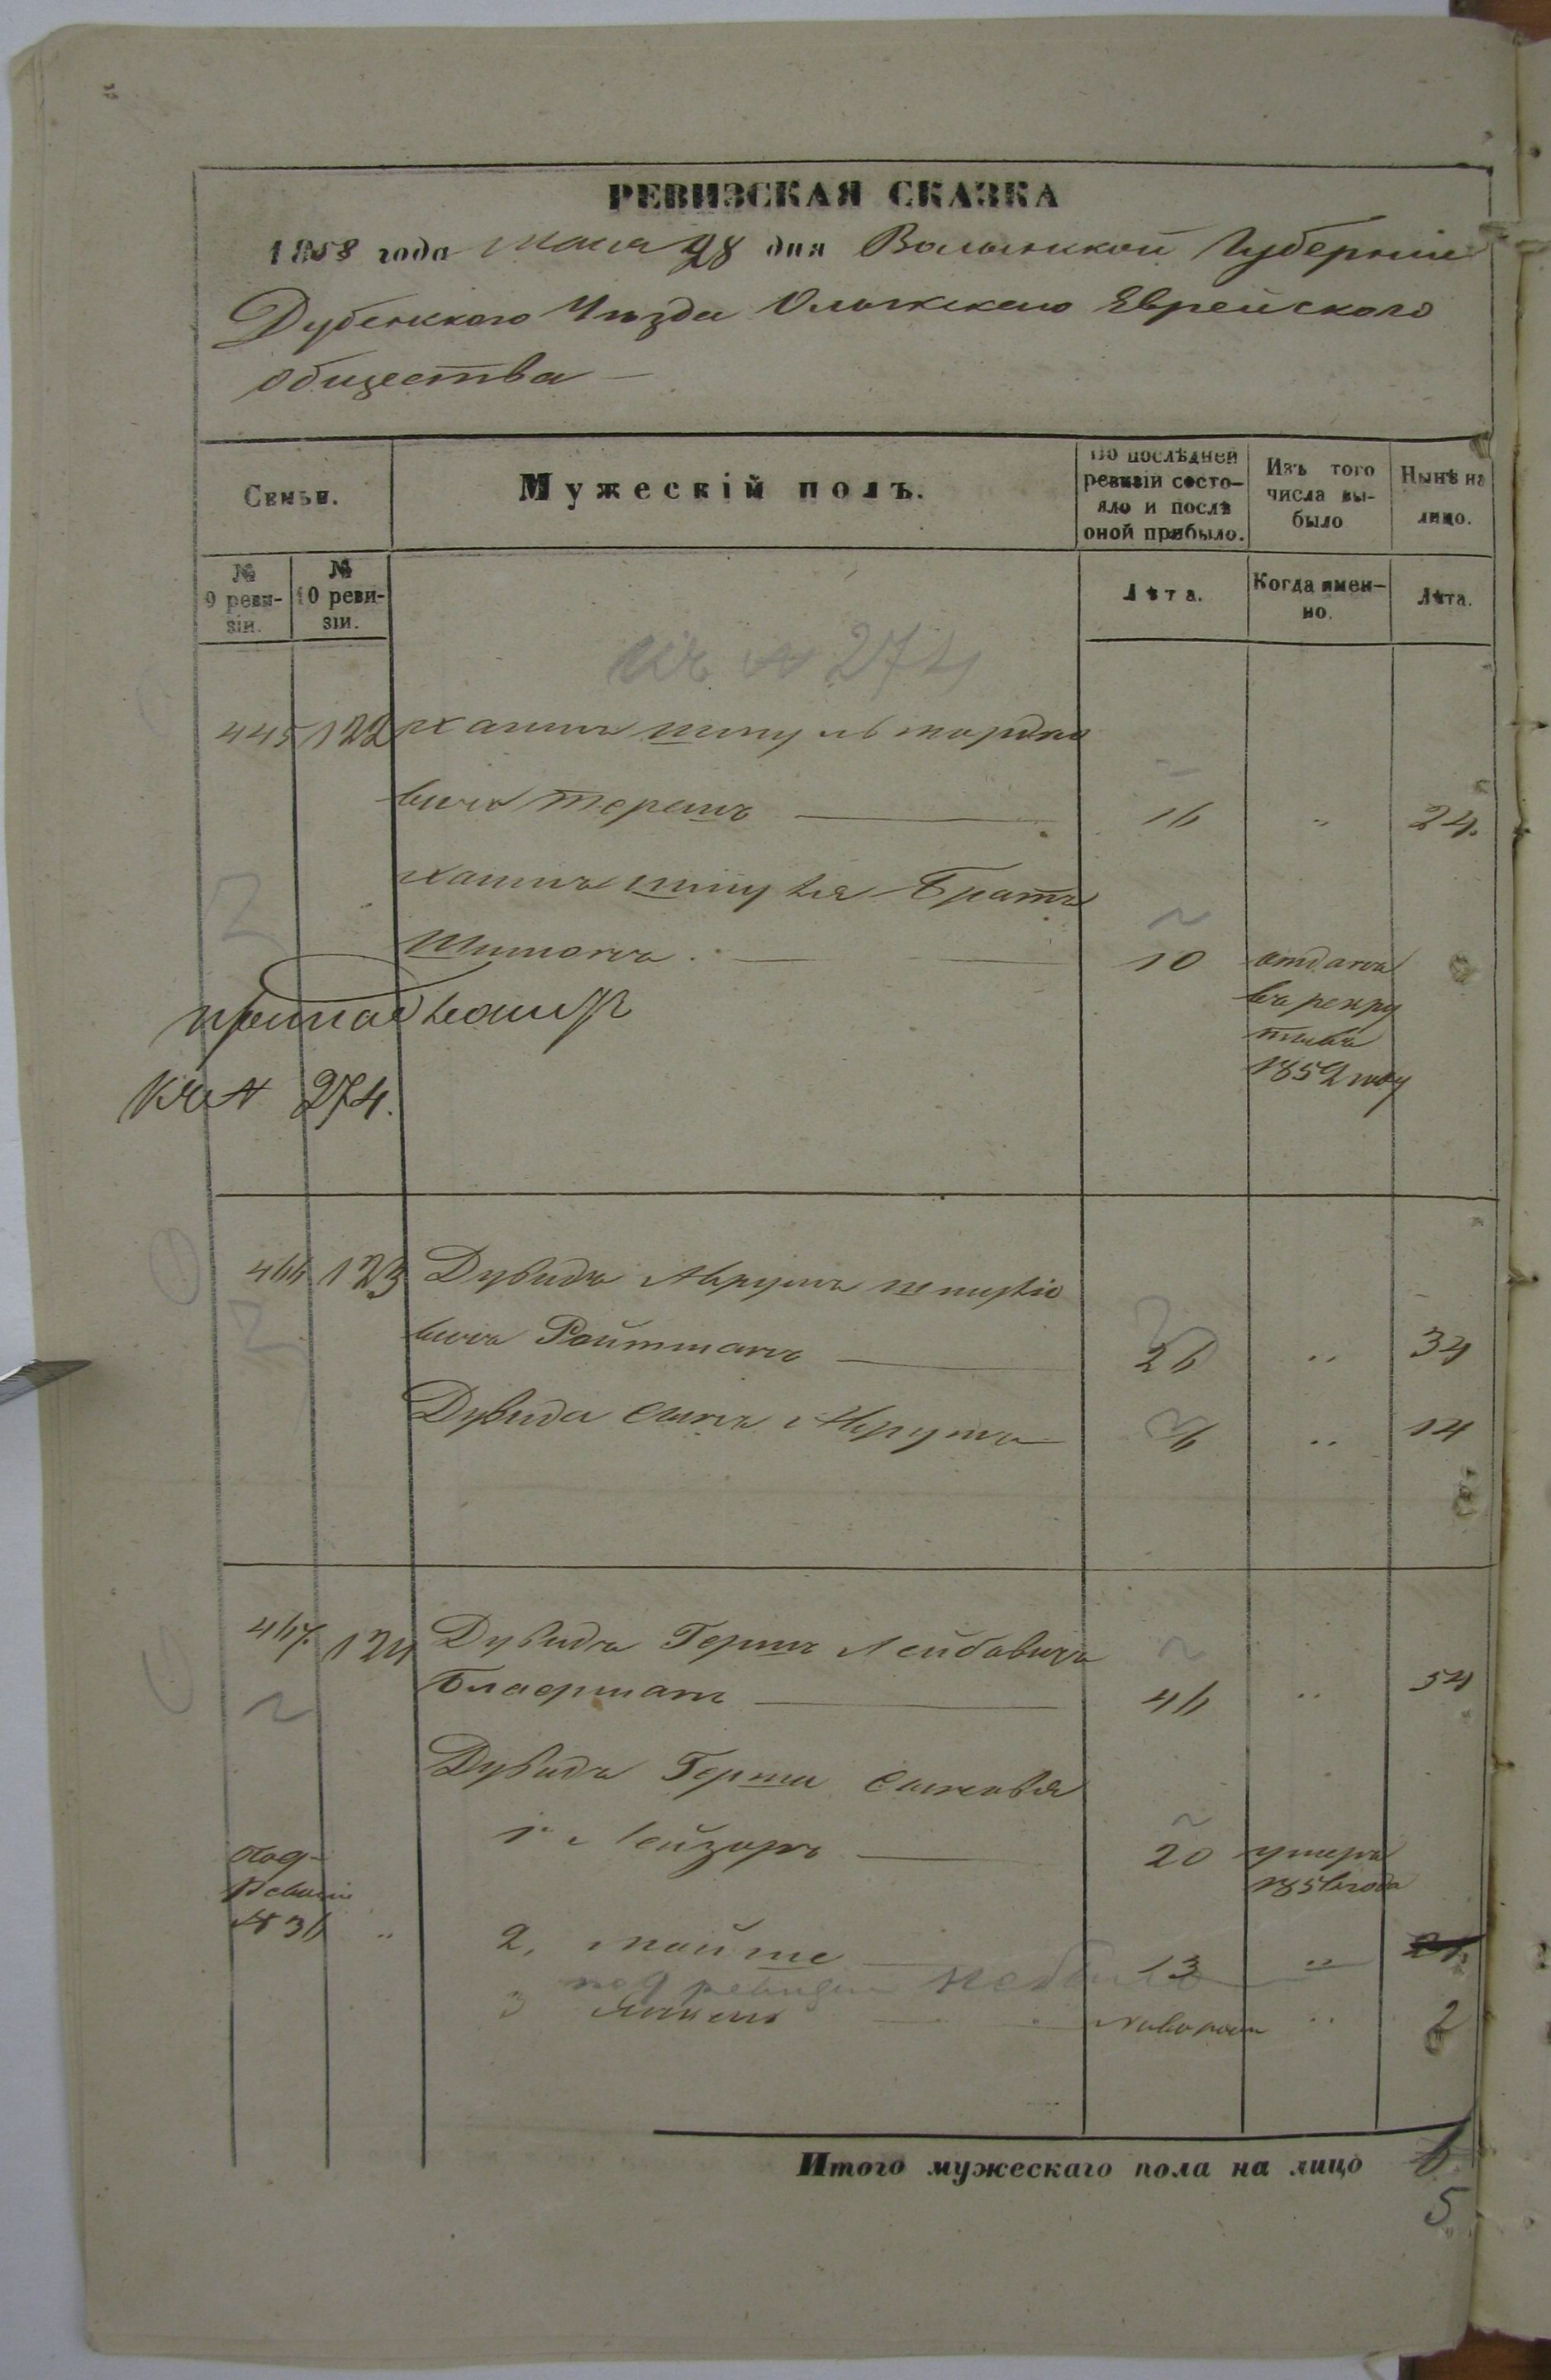 РЕВИЗСКАЯ СКАЗКА
1858 года Мая 28 дня Волынской Губерніи
Дубенского Уѣзда Олыкского Еврейского
общества —
Семьи.
Мужескій полъ.
По послѣдней ревизіи состо-
яло и послѣ
оной прибыло.
Изъ того
числа вы-
было
Нынѣ на
лицо.
№
9 реви-
зіи.
№
10 реви-
зіи.
Лѣта.
Когда имен-
но.
Лѣта.
Къ № 274
445 122 Хаимъ шмуль мордко
вичъ Терешъ 16 " 24.
Хаимъ шмуля Братъ
Шимонъ 10 отданъ
въ рекру
ты въ
1852 году
Къ № 274.
466 123 Дувидъ Аврумъ
вичъ Ройтманъ 26 " 34
Дувида Сынъ Аврумъ 6 " 14
467. 124 Дувидъ Гершъ Лейбовичъ
46 " 54
Дувидъ Герша Сыновья
1. Лейзоръ 20 умеръ
1856 года
под-
Ревизіи
№ 36 "
2. Мойше 13 "
под ревизіи не было
3 новорож " 2
Итого мужескаго пола на лицо 6
5